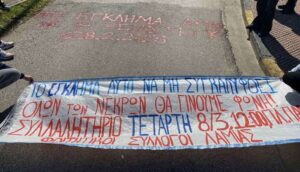 ΕΓΚΛΗΜΑ
28.2.
ΤΟ ΕΓΚΛΗΜΑ ΑΥΤΟ ΝΑ ΜΗ ΣΥΓΚΑΛΥΦΘΕΙ
ΟΛΩΝ ΤΩΝ ΝΕΚΡΩΝ ΘΑ ΓΙΝΟΥΜΕ ΦΩΝΗ!
ΣΥΛΛΑΛΗΤΗΡΙΟ ΤΕΤΑΡΤΗ 8/3, 12:00
ΦΟΙΤΗΤΙΚΟΙ ΣΥΛΛΟΓΟΙ ΛΑΜΙΑΣ